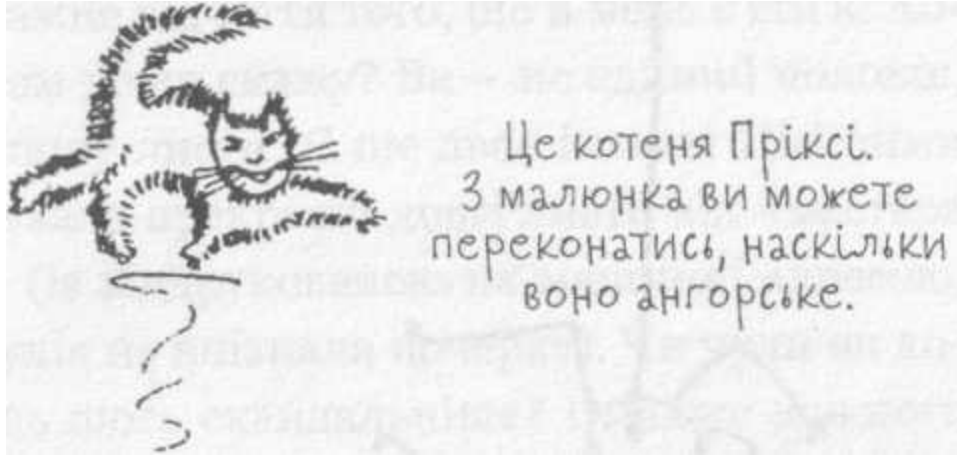 Це котеня Пріксі.
З малюнка ви можете
переконатись, наскільки
воно ангорське.